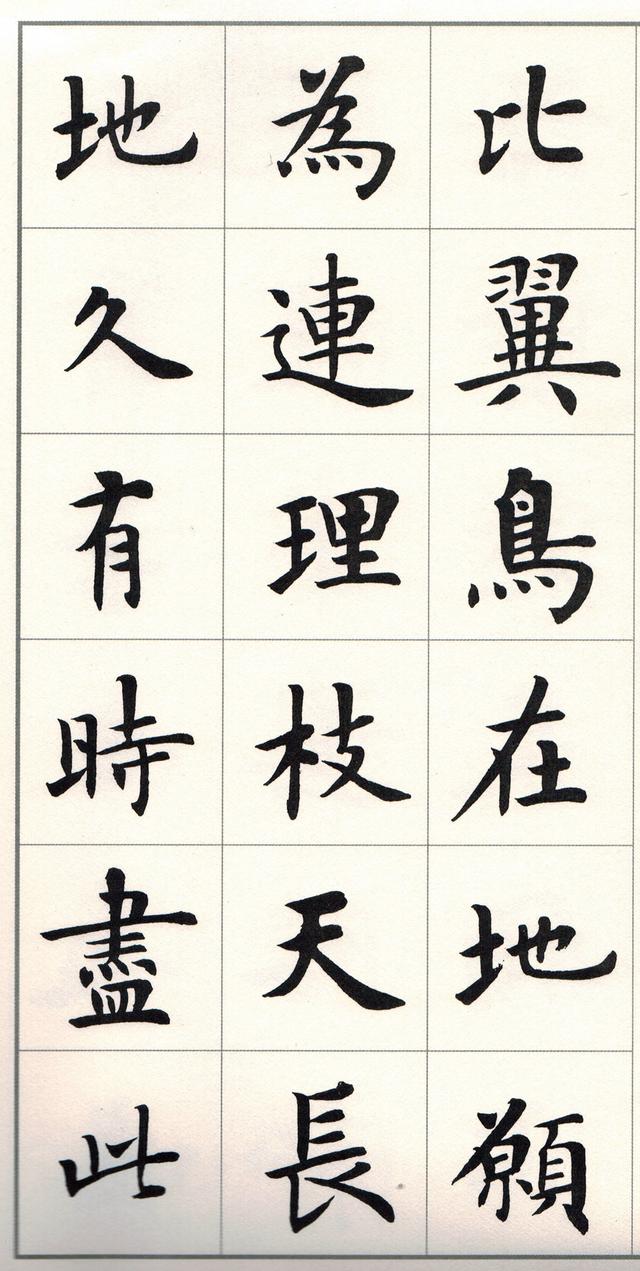 比翼鳥在地願
為連理枝天長
地久有時盡此